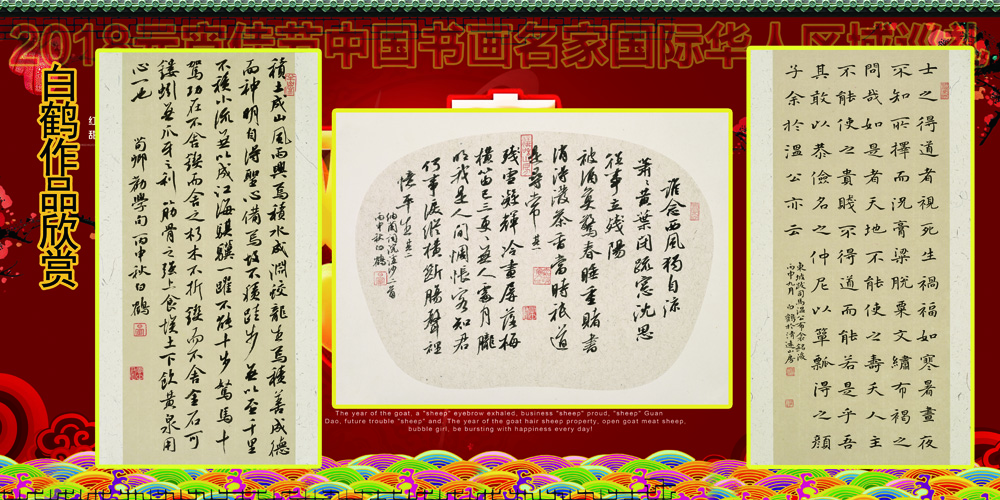 2018元宵佳节中国书画名家国际华人区域巡
白鹤作品欣赏
積土成山風雨興焉積水成淵蛟龍生焉積善成德
而神明自得聖心備焉故不積跬步無以至千里
不積小流無以成江海騏驥一躍不能十步駑馬十
駕功在不舍鍥而舍之朽木不折鍥而不舍金石可
鏤螾無爪牙之利筋骨之強上食埃土下飲黃泉用
心一也 荀卿勸學句 丙申秋白鶴
誰念西風獨自涼
蕭〻黃葉閉疏窗沈思
往事立殘陽
被酒莫驚春睡重賭書
消得潑茶香當時祇道
是尋常 其一
殘雪凝輝冷畫屏落梅
橫笛已三更無人處月朧
明我是人間惆悵客知君
何事淚縱橫斷腸聲裡
憶平生 其二
納蘭詞浣溪沙二首
丙申秋白鶴
士之得道者視死生禍福如寒暑晝夜
不知所擇而況膏粱脫粟文繡布褐之
間哉如是者天地不能使之壽夭人主
不能使之貴賤不得道而能若是乎吾
其敢以恭儉名之仲尼以簞瓢得之顏
子余於溫公亦云
東坡跋司馬溫公布衾銘後
丙申九月 白鶴於清
The year of the goat, a "sheep" eyebrow exhaled, business "sheep" proud, "sheep" Guan
Dao, future trouble "sheep" and, The year of the goat hair sheep property, open goat meat sheep,
bubble girl, be bursting with happiness every day!